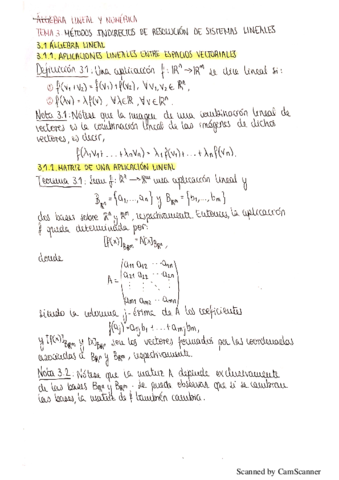 ÁLGEBRA LINEAL Y NUMÉRICA
TEMA 3. MÉTODOS INDIRECTOS DE RESOLUCIÓN DE SISTEMAS LINEALES
3.1 ÁLGEBRA LINEAL
3.1.1. APLICACIONES LINEALES ENTRE ESPACIOS VECTORIALES
Definición 3.1. Una aplicación f: ℝⁿ → ℝᵐ se dice lineal si:
① f(v₁+v₂) = f(v₁)+f(v₂), ∀v₁,v₂ ∈ ℝⁿ,
② f(λv) = λf(v), ∀λ∈ℝ, ∀v∈ℝⁿ.
Nota 3.1. Nótese que la imagen de una combinación lineal de
vectores es la combinación lineal de las imágenes de dichos
vectores, es decir,
f(λ₁v₁+...+λₙvₙ) = λ₁f(v₁)+...+λₙf(vₙ).
3.1.2 MATRIZ DE UNA APLICACIÓN LINEAL
Teorema 3.1. Sean f: ℝⁿ → ℝᵐ una aplicación lineal y
B_ℝⁿ = {a₁,...,aₙ} y B_ℝᵐ = {b₁,...,bₘ}
dos bases sobre ℝⁿ y ℝᵐ, respectivamente. Entonces, la aplicación
f queda determinada por:
[f(x)]_Bℝᵐ = A[x]_Bℝⁿ,
donde
A = (a₁₁ a₁₂ ... a₁ₙ
a₂₁ a₂₂ ... a₂ₙ
⋮ ⋮ ⋱ ⋮
aₘ₁ aₘ₂ ... aₘₙ)
siendo la columna j-ésima de A los coeficientes
f(aⱼ) = a₁ⱼb₁+...+aₘⱼbₘ,
y [f(x)]_Bℝᵐ y [x]_Bℝⁿ son los vectores formados por las coordenadas
asociadas a Bℝᵐ y Bℝⁿ, respectivamente.
Nota 3.2. Nótese que la matriz A depende exclusivamente
de las bases Bℝⁿ y Bℝᵐ. Se puede observar que si se cambian
las bases, la matriz de f también cambia.
Scanned by CamScanner